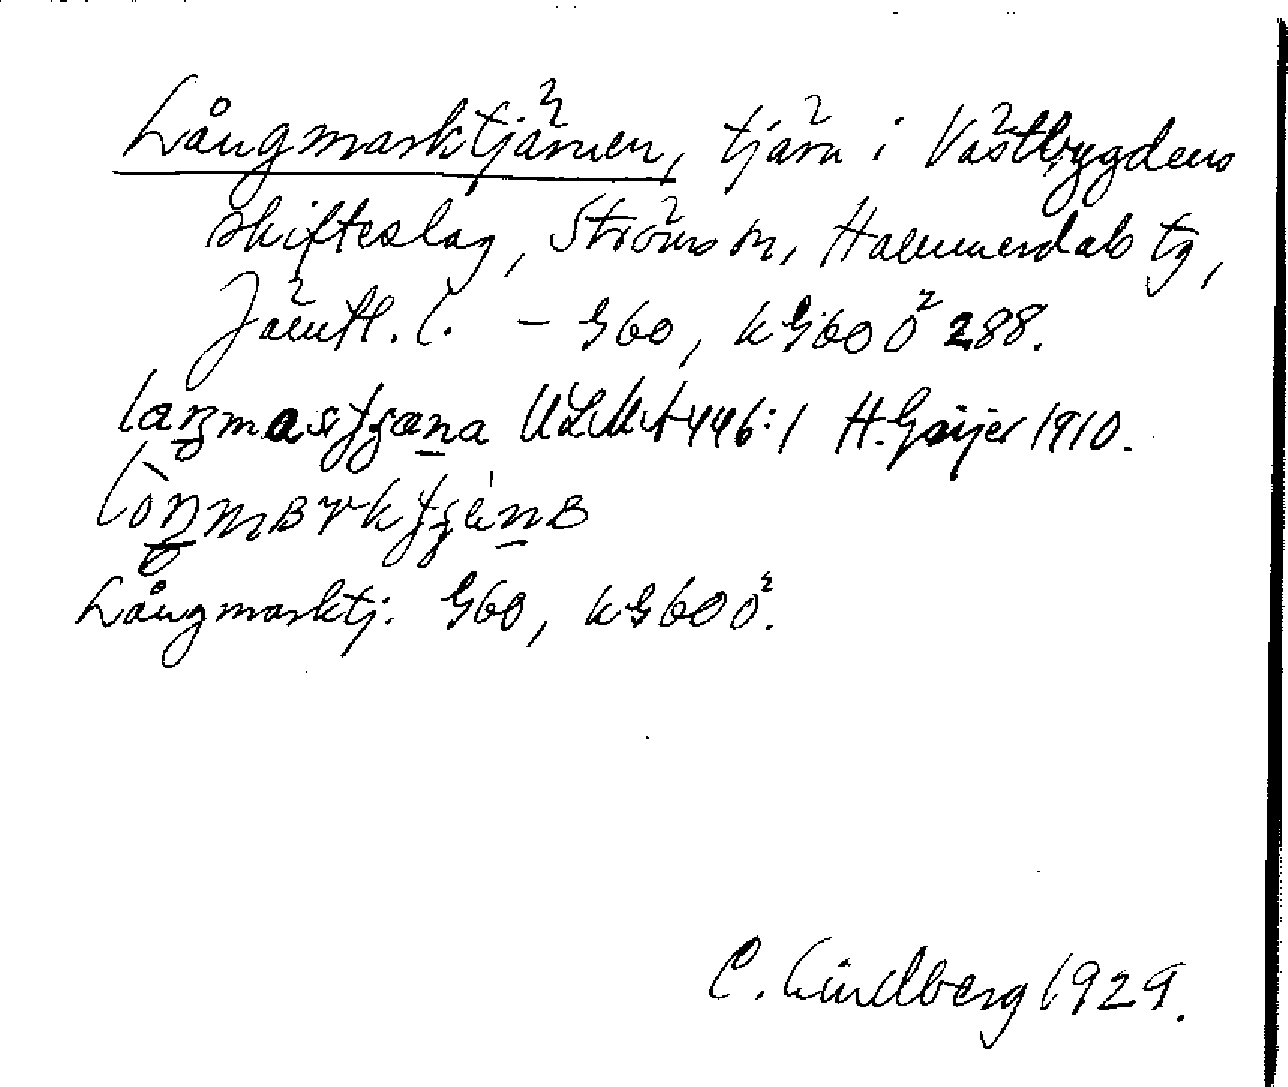 Långmarktjärnen, tjärn i Västbygdens
skifteslag, Ströms sn, Hammerdals tg,
Jämtl. l. – G60, kG60Ö² 288.
ULMA 446:1 H. Geijer 1910.
Långmarktj. G60, kG60Ö².
C. Lindberg 1929.